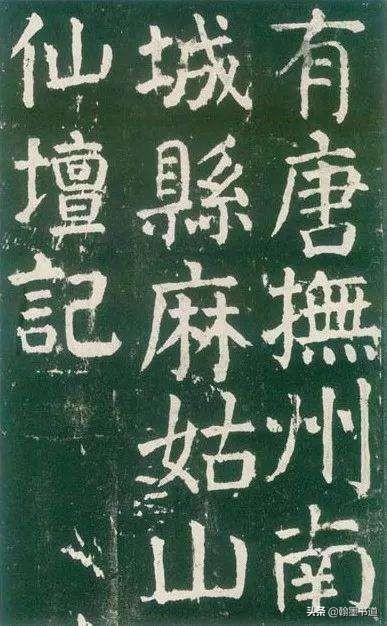 有唐撫州南
城縣麻姑山
仙壇記
头条 @翰墨书道